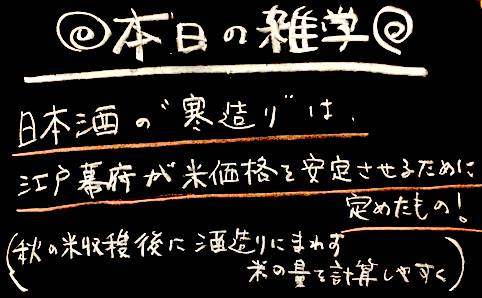 本日の雑学
日本酒の"寒造り"は、
江戸幕府が米価格を安定させるために
定めたもの!
(秋の米収穫後に酒造りにまわす
米の量を計算しやすく)